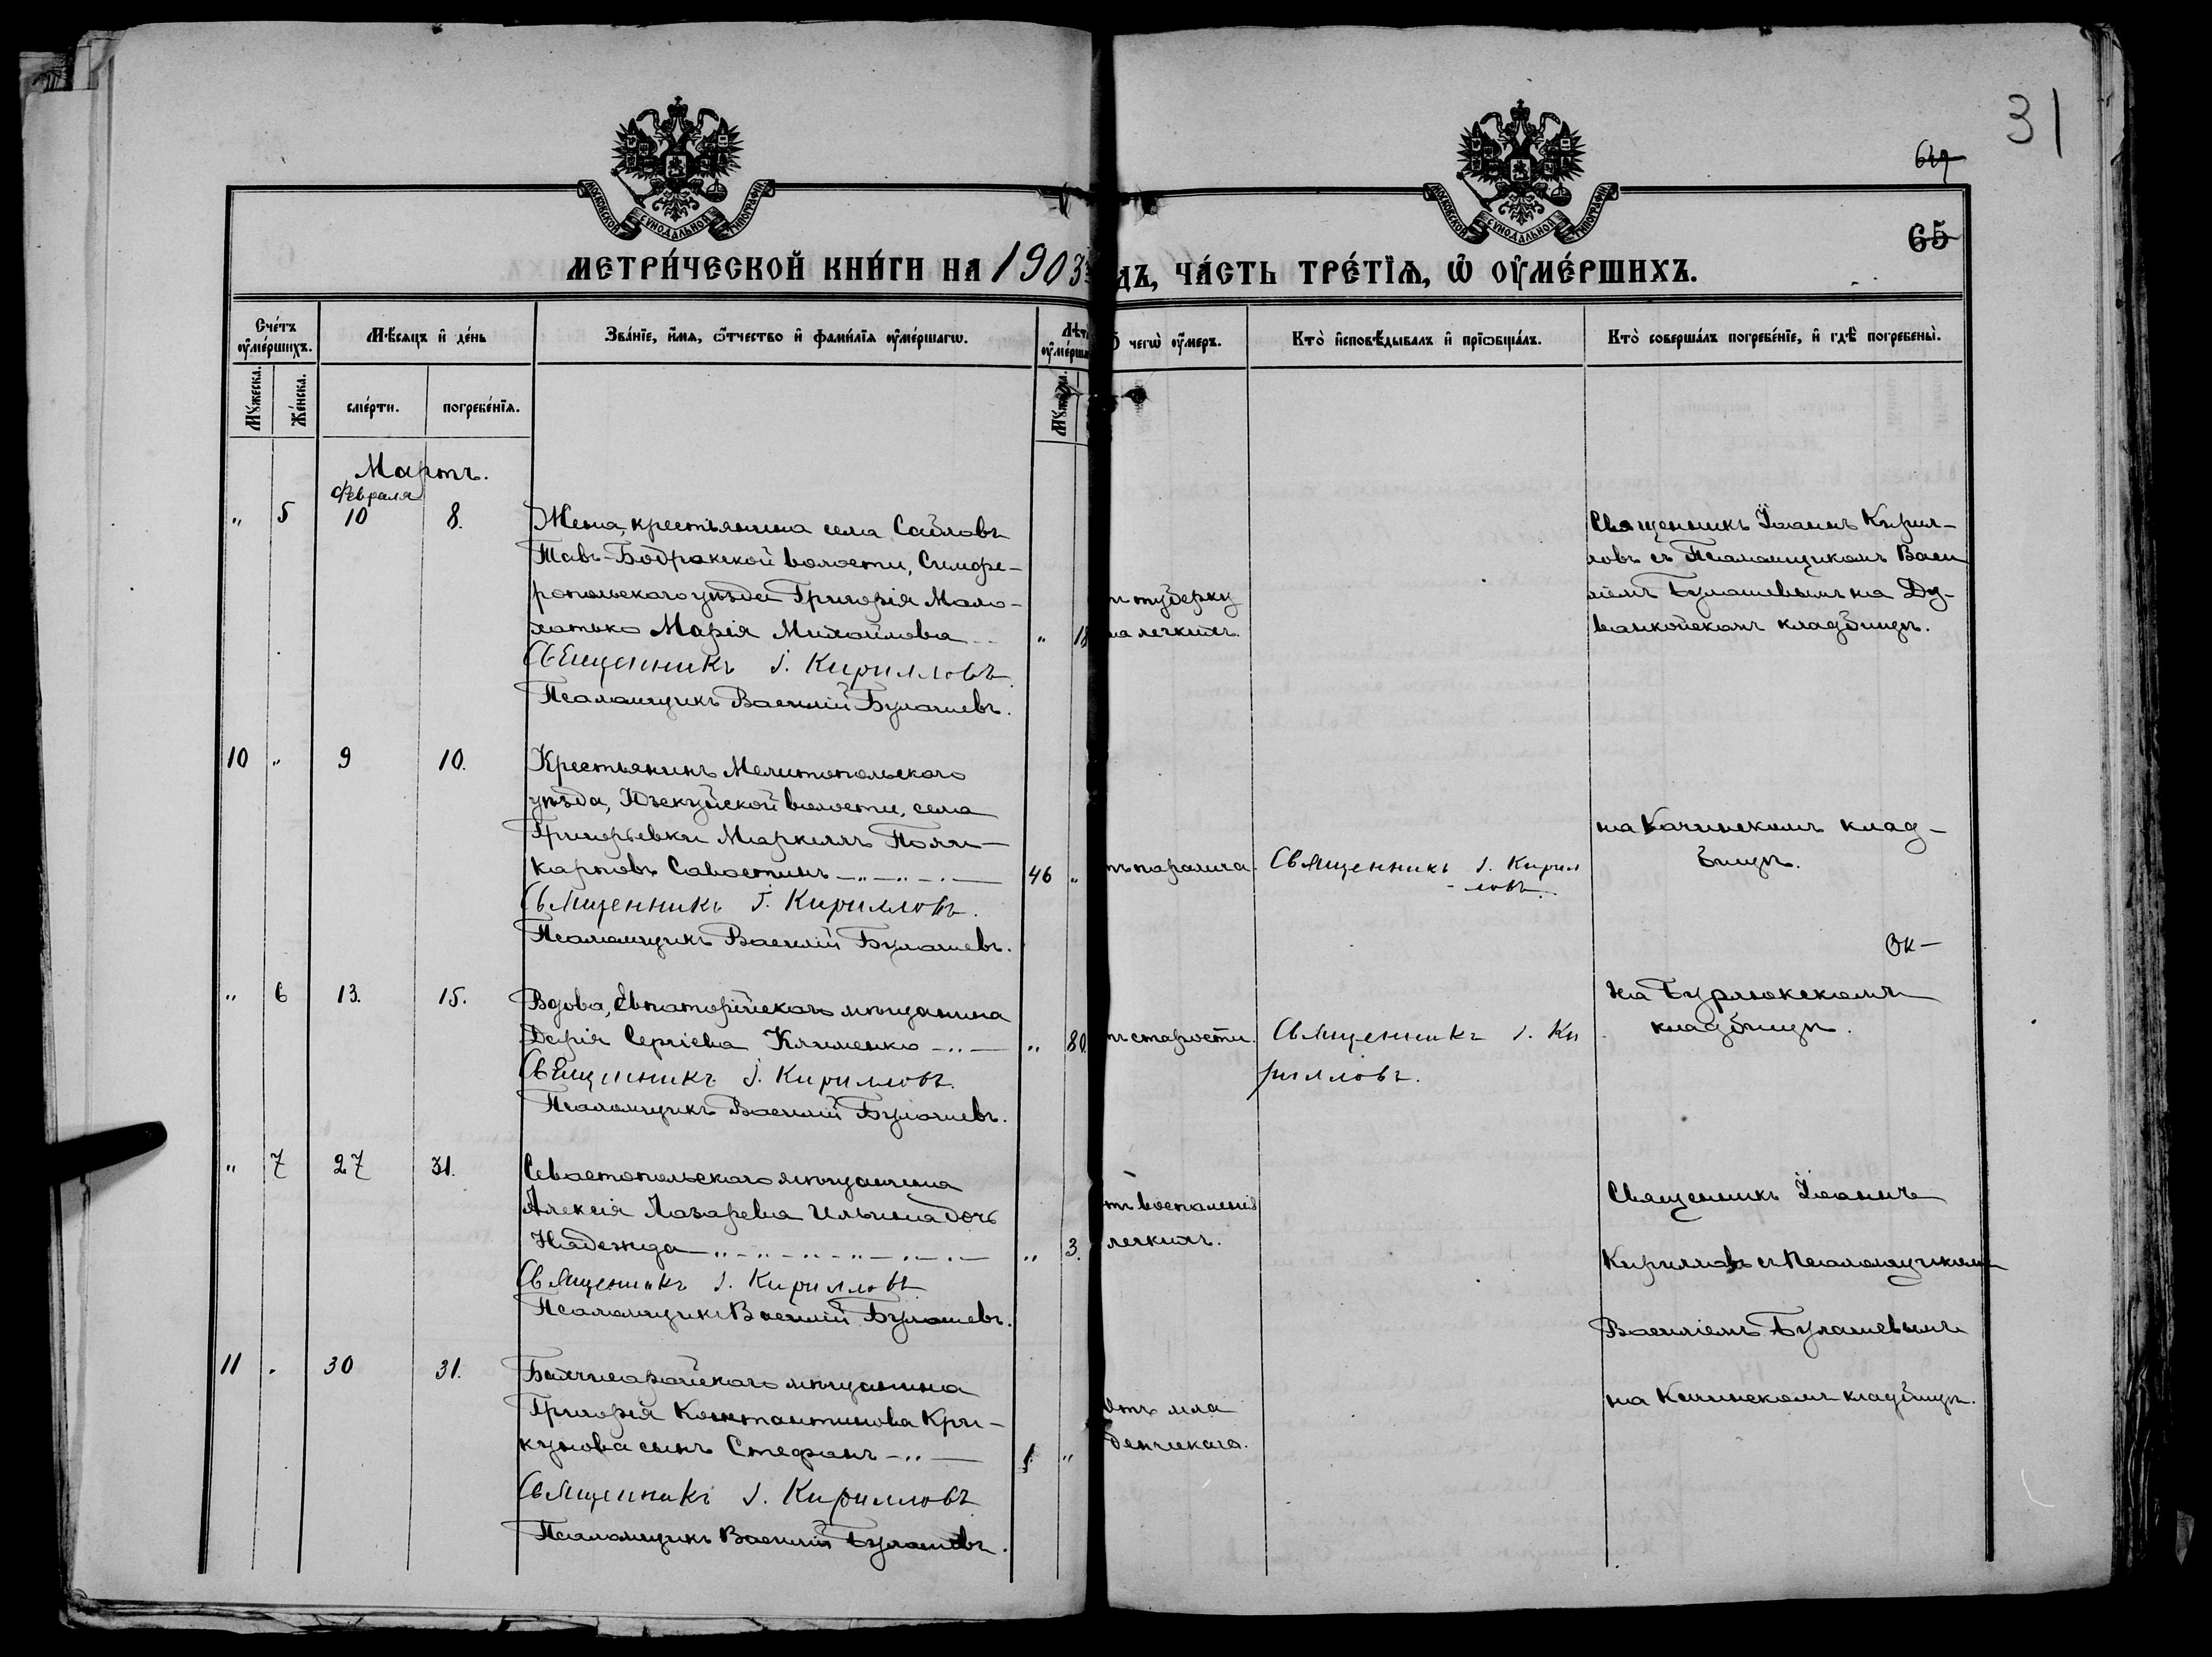 31
649
65
МОСКОВСКОЙ СѴНОДАЛЬНОЙ ТИПОГРАФІИ
МОСКОВСКОЙ СѴНОДАЛЬНОЙ ТИПОГРАФІИ
МЕТРИ́ЧЕСКОЙ КНИ́ГИ НА 1903
ДЪ, ЧА́СТЬ ТРЕ́ТІѦ, Ѡ҆ ОУ҆МЕ́РШИХЪ.
Сче́тъ оу҆ме́ршихъ.
Мѣ́сяцъ и҆ де́нь
Зва́нїе, и҆́мѧ, ѻ҆́тчество и҆ фами́лїѧ оу҆ме́ршагѡ.
Лѣт
оу҆ме́рша
чегѡ̀ оу҆́меръ.
Кто̀ и҆сповѣ́дывалъ и҆ прїѡбща́лъ.
Кто̀ соверша́лъ погребе́нїе, и҆ гдѣ̀ погребены̀.
Мꙋ́жеска.
Же́нска.
сме́рти.
погребе́нїѧ.
Мартъ.
февраля
" 5 10 8. Жена, крестьянина села Сабловъ
Тавъ-Бодракской волости, Симфе-
ропольскаго уѣзда Григорія Мало-
хатько Марія Михайлова " 18
Священникъ І. Кирилловъ.
Псаломщикъ Василій Булашевъ.
туберку
легкихъ.
Священникъ Іоаннъ Кирил-
ловъ съ Псаломщикомъ Васи
ліемъ Булашевымъ на Ду-
ванкойскомъ кладбищѣ.
10 " 9 10. Крестьянинъ Мелитопольскаго
уѣзда, Юзкуйской волости, села
Григорьевки Маркеллъ Поли-
карповъ Савостинъ 46 "
Священникъ І. Кирилловъ.
Псаломщикъ Василій Булашевъ.
тъ паралича.
Священникъ І. Кирил
-ловъ.
на Качинскомъ клад-
бищѣ.
" 6 13. 15. Вдова, Евпаторійскаго мѣщанина
Дарія Сергіева Клименко " 80.
Священникъ І. Кирилловъ.
Псаломщикъ Василій Булашевъ.
тъ старости.
Священникъ І. Ки
рилловъ.
На Бурлюкскомъ
кладбищѣ.
" 7 27 31. Севастопольскаго мѣщанина
Алексія Лазарева Ильина дочь
Надежда " 3.
Священникъ І. Кирилловъ
Псаломщикъ Василій Булашевъ.
тъ воспаленія
легкихъ.
Священникъ Іоаннъ
Кирилловъ съ Псаломщикомъ
Василіемъ Булашевымъ
на Качинскомъ кладбищѣ.
11 " 30 31. Бахчисарайскаго мѣщанина
Григорія Константинова Кри-
кунова сынъ Стефанъ 1 "
Священникъ І. Кирилловъ
Псаломщикъ Василій Булашевъ.
Отъ мла
денческаго.